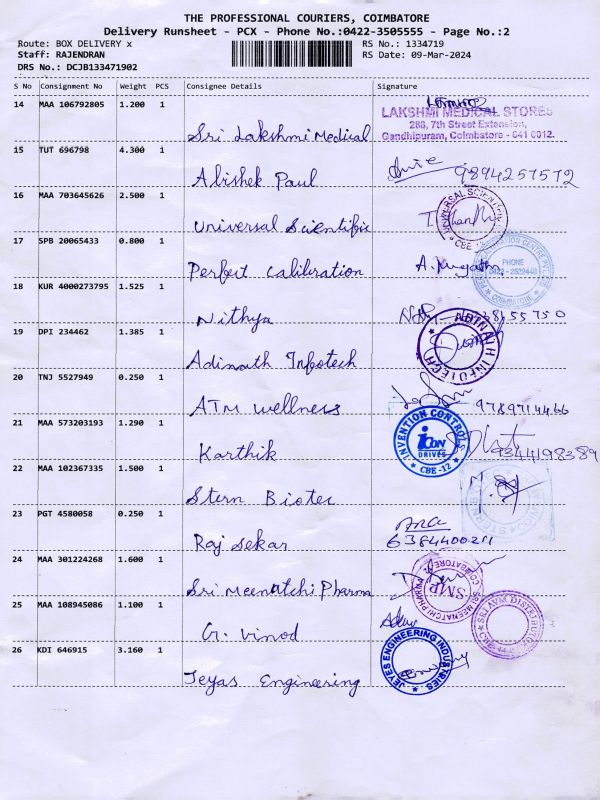 THE PROFESSIONAL COURIERS, COIMBATORE
Delivery Runsheet - PCX - Phone No.:0422-3505555 - Page No.:2
Route: BOX DELIVERY x RS No.: 1334719
Staff: RAJENDRAN RS Date: 09-Mar-2024
DRS No.: DCJB133471902
S No Consignment No Weight PCS Consignee Details Signature
14 MAA 106792805 1.200 1
Sri Lakshmi Medical
LAKSHMI MEDICAL STORES
288, 7th Street Extension,
Gandhipuram, Coimbatore - 641 0012.
15 TUT 696798 4.300 1
Abishek Paul 9894257572
16 MAA 703645626 2.500 1
Universal Scientific
UNIVERSAL SCIENTIFIC
17 SPB 20065433 0.800 1
Perfect calibration
PHONE
COIMBATORE
18 KUR 4000273795 1.525 1
Nithya
19 DPI 234462 1.385 1
Adinath Infotech
ADINATH INFOTECH
20 TNJ 5527949 0.250 1
ATM wellness 9789714466
21 MAA 573203193 1.290 1
Karthik 9344198389
INVENTION CONTROLS
iCON
DRIVES
CBE-12
22 MAA 102367335 1.500 1
Stern Biotec
23 PGT 4580058 0.250 1
Raj Sekar
24 MAA 301224268 1.600 1
Sri Meenatchi Pharma
SRI MEENATCHI PHARMA
COIMBATORE
SMP
25 MAA 108945086 1.100 1
G. Vinod
26 KDI 646915 3.160 1
Jeyas Engineering
JEYES ENGINEERING INDUSTRIES